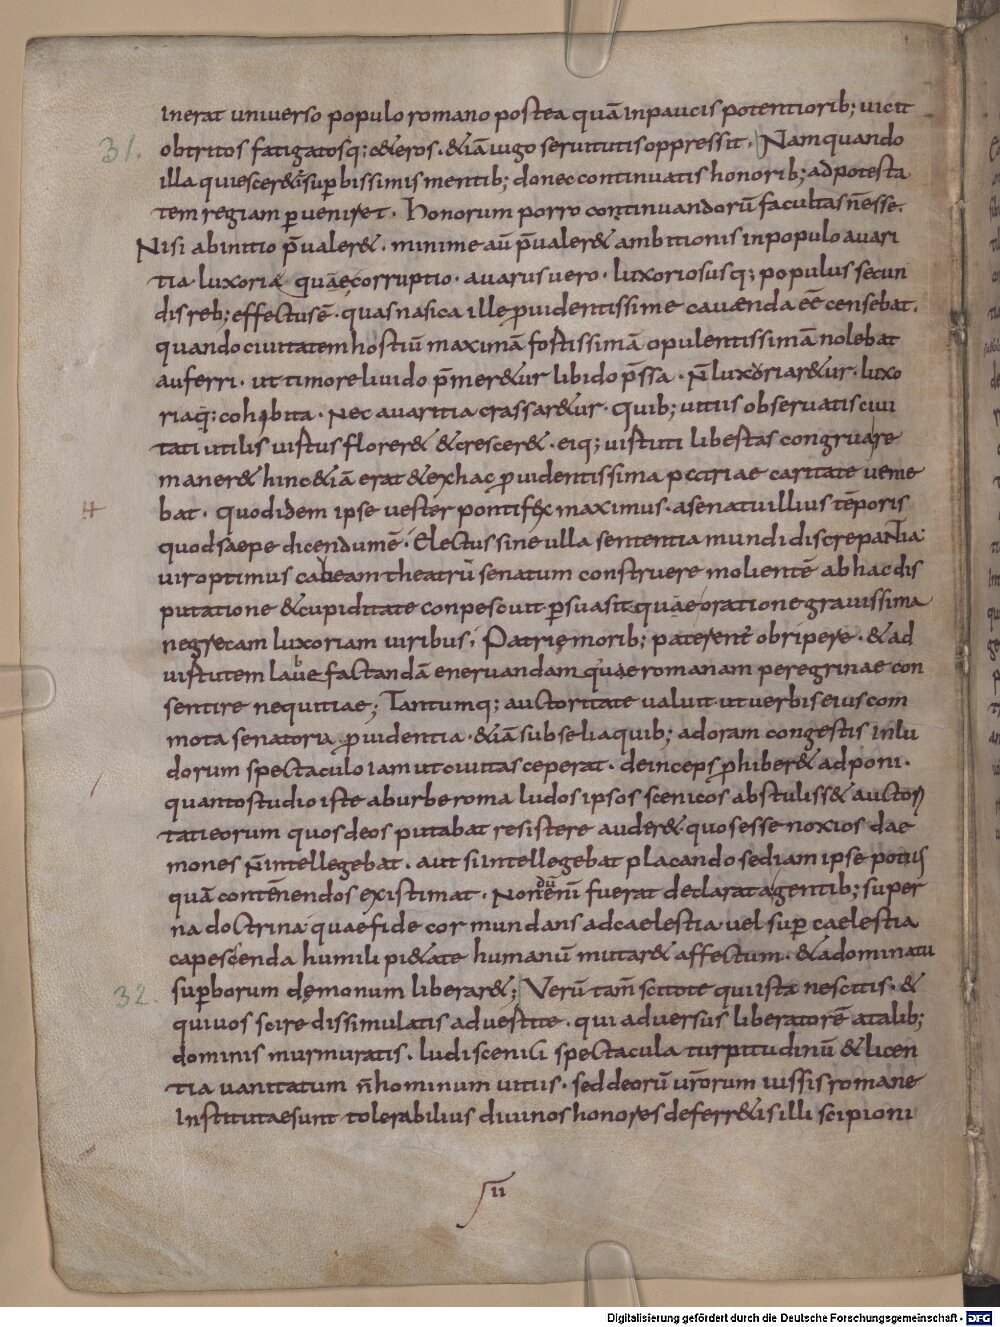 inerat universo populo romano postea quā inpaucis potentiorib; vicit
31. obtritos fatigatosq; c&eros · &iā iugo servitutis oppressit · Nam quando
illa quiescer& superbissimis mentib; donec continuatis honorib; adpotesta
tem regiam pveniret · honorum porro continuandorū facultas n̄ esse.
Nisi abinitio p̄valer& · minime aū p̄valer& ambitionis inpopulo avari
tia luxoriae quae corruptio · avarus vero · luxoriosusq; populus secun
dis reb; effectus ē · quas nasica ille pvidentissime cavenda eē censebat ·
quando civitatem hostiū maximā fortissimā opulentissimā nolebat
auferri · ut timore livido p̄mer&ur libido p̄ssa · N̄ luxoriar&ur · luxo
riaq; cohibita · nec avaritia crassar&ur · quib; vitiis observatis civi
tati utilis virtus florer& &crescer& · eiq; virtuti libertas congruare
maner& hinc &iā erat &exhac pvidentissima patriae caritate venie
bat · quod idem ipse vester pontifex maximus · asenatu illius tēporis
quod saepe dicendum ē · Electus sine ulla sententia mundi discrepantia
vir optimus cabeam theatrū senatum construere molientē abhac dis
putatione &cupiditate conpescuit · psuasit quae oratione gravissima
negrecam luxoriam viribus · Patrie morib; paterent obripere · &ad
virtutem labefactandā enervandam quae romanam peregrinae con
sentire nequitiae ; Tantumq; auctoritate valuit ut verbis eius com
mota senatoria pvidentia · &iā subseliaquib; adoram congestis inlu
dorum spectaculo iam ut civitas ceperat · deinceps phiber& adponi ·
quanto studio iste aburbe roma ludos ipsos scenicos abstuliss& auctori
tati eorum quos deos putabat resistere auder& · quos esse noxios dae
mones n̄ intellegebat · aut si intellegebat placando sediam ipse potius
quā contēnendos existimat · Nondū enī fuerat declarata gentib; super
na doctrina quae fide cor mundans adcaelestia vel sup caelestia
capescenda humili pi&ate humanū mutar& affectum · &adominatu
32. superborum demonum liberar&; Verū tam̄ scitote qui ista nescitis · &
qui vos scire dissimulatis advertite · qui adversus liberatorē atalib;
dominis murmuratis · ludi scenici spectacula turpitudinū &licen
tia vanitatum n̄ hominum vitiis · sed deorū vr̄orum iussis romane
Institutae sunt tolerabilius divinos honores deferr&is illi scipioni
II
Digitalisierung gefördert durch die Deutsche Forschungsgemeinschaft - DFG